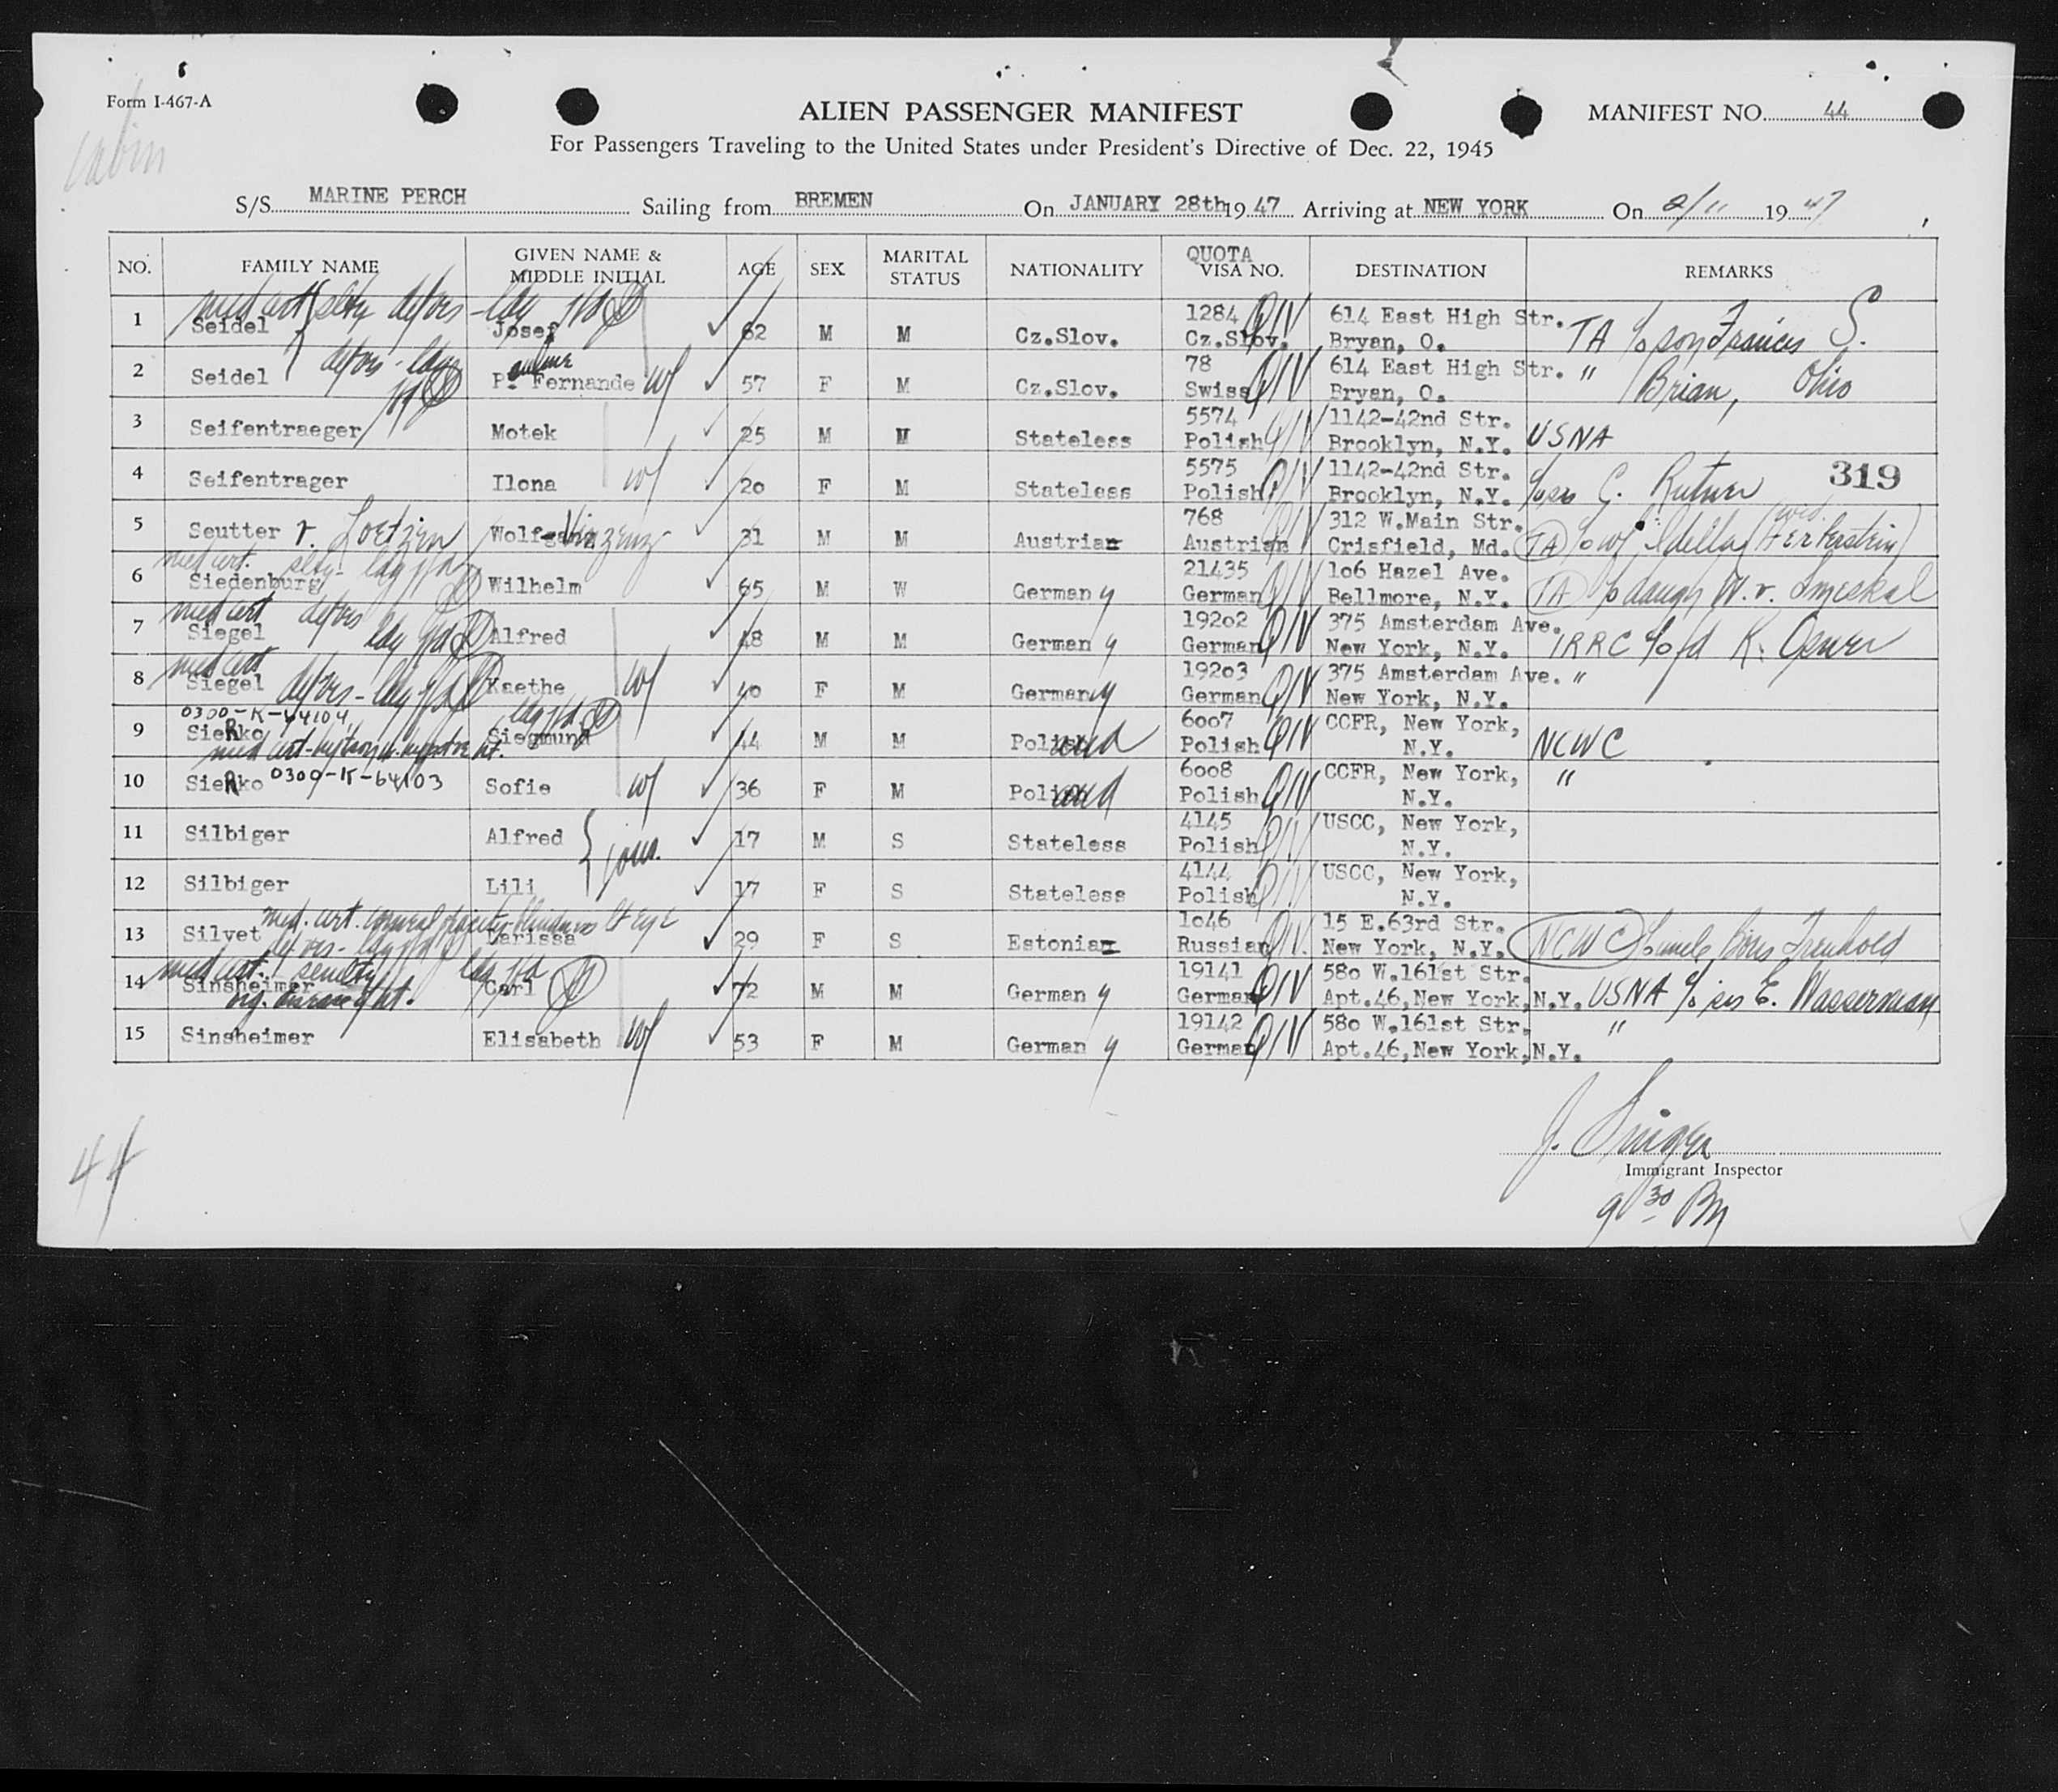 Form I-467-A
ALIEN PASSENGER MANIFEST
MANIFEST NO. 44
For Passengers Traveling to the United States under President's Directive of Dec. 22, 1945
cabin
S/S MARINE PERCH Sailing from BREMEN On JANUARY 28th 19 47 Arriving at NEW YORK On 2/11 19 47
NO. FAMILY NAME GIVEN NAME & MIDDLE INITIAL AGE SEX MARITAL STATUS NATIONALITY QUOTA VISA NO. DESTINATION REMARKS
med cert
1 Seidel Josef 62 M M Cz.Slov. 1284 Cz.Slov. QIV 614 East High Str. Bryan, O. TA c/o son Francis S.
2 Seidel P. Fernande w 57 F M Cz.Slov. 78 Swiss QIV 614 East High Str. Bryan, O. " Brian, Ohio
3 Seifentraeger Motek 25 M M Stateless 5574 Polish QIV 1142-42nd Str. Brooklyn, N.Y. USNA
4 Seifentrager Ilona w 20 F M Stateless 5575 Polish QIV 1142-42nd Str. Brooklyn, N.Y. G. Rutner 319
5 Seutter v. Loetzen Wolfgang Vinzenz 31 M M Austrian 768 Austrian QIV 312 W.Main Str. Crisfield, Md. TA c/o wf
med cert.
6 Siedenburg Wilhelm 65 M W Germany 21435 German QIV 106 Hazel Ave. Bellmore, N.Y. TA c/o daugh W. v. Smeskal
med cert
7 Siegel Alfred 48 M M Germany 19202 German QIV 375 Amsterdam Ave. New York, N.Y. IRRC c/o fd K.
med cert
8 Siegel Kaethe w 40 F M Germany 19203 German QIV 375 Amsterdam Ave. New York, N.Y. "
0300-K-44104
9 SieRko Siegmund 44 M M Poland 6007 Polish QIV CCFR, New York, N.Y. NCWC
med cert
10 SieRko 0300-K-64103 Sofie w 36 F M Poland 6008 Polish QIV CCFR, New York, N.Y. "
11 Silbiger Alfred 17 M S Stateless 4145 Polish QIV USCC, New York, N.Y.
12 Silbiger Lili 17 F S Stateless 4144 Polish QIV USCC, New York, N.Y.
med. cert. corneal opacity blindness lt eye
13 Silvet Larissa 29 F S Estonian 1046 Russian QIV 15 E.63rd Str. New York, N.Y. NCWC c/o uncle Boris
med cert. senility
14 Sinsheimer Carl 72 M M Germany 19141 German QIV 580 W.161st Str. Apt.46, New York, N.Y. USNA c/o sis E. Wasserman
15 Sinsheimer Elisabeth w 53 F M Germany 19142 German QIV 580 W.161st Str. Apt.46, New York, N.Y. "
J. Singer
Immigrant Inspector
44
9 30 Pm